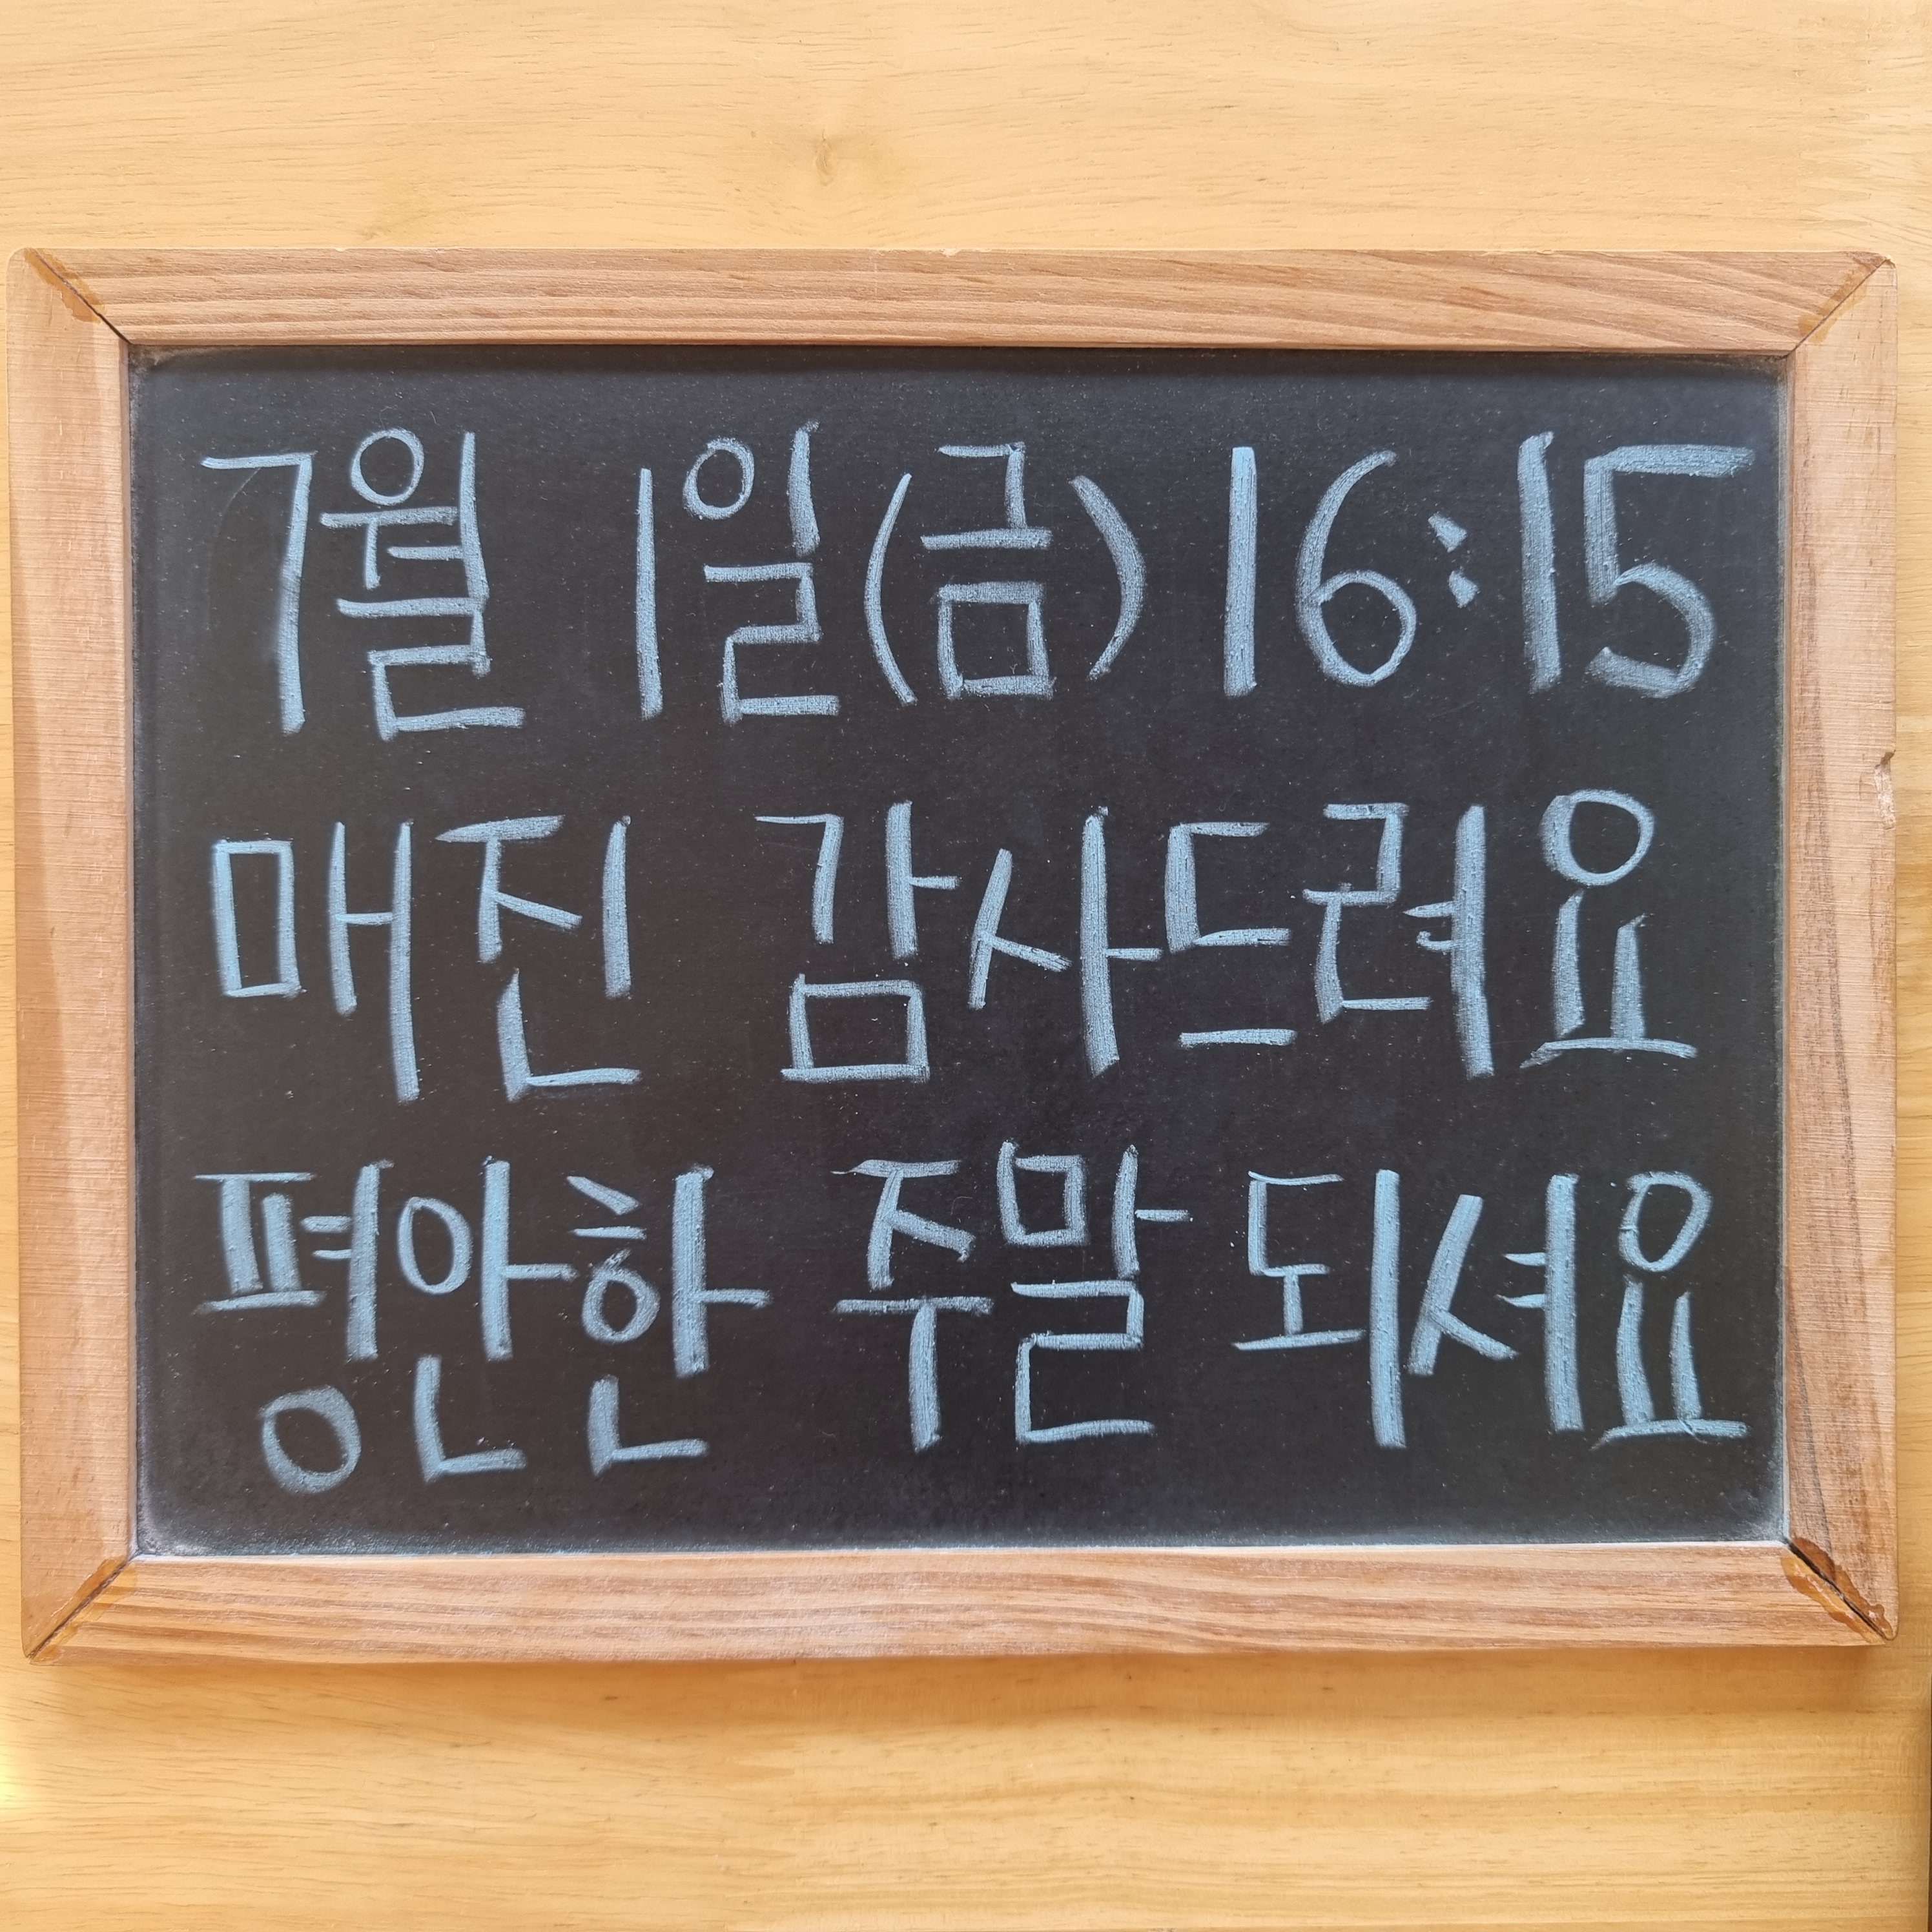 7월 1일(금) 16:15
매진 감사드려요
평안한 주말 되셔요